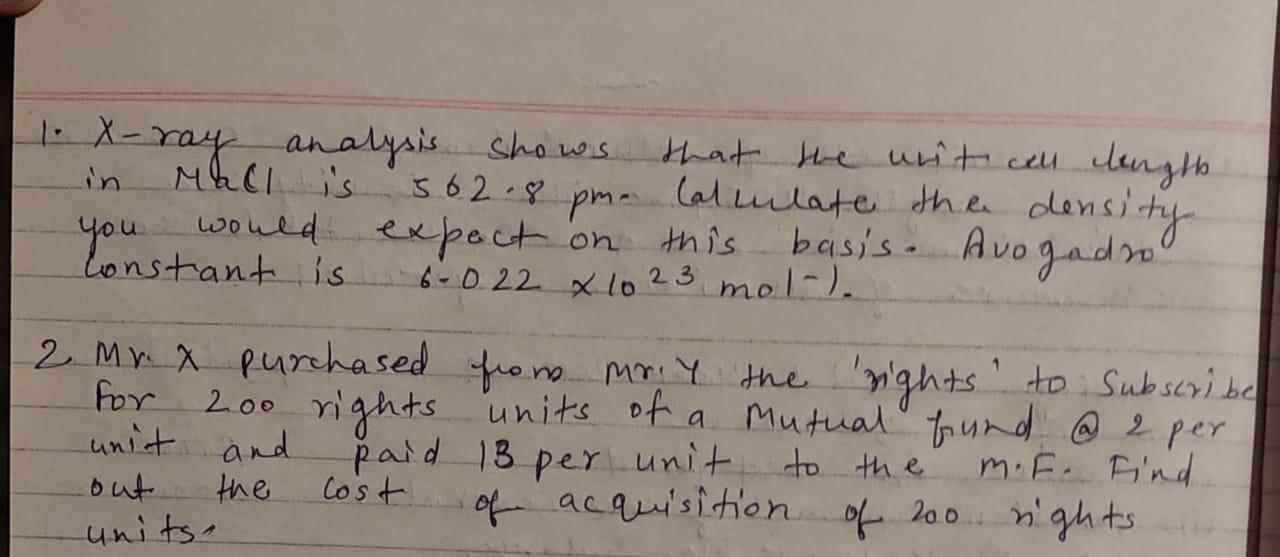 1. X-ray analysis shows that the unit cell length
in NaCl is 562.8 pm. Calculate the density
you would expect on this basis. Avogadro
constant is 6.022 x 10 23 mol-1.
2 Mr. X purchased from Mr. Y the 'rights' to Subscribe
for 200 rights units of a Mutual fund @ 2 per
unit and paid 13 per unit to the M.F. Find
out the cost of acquisition of 200 rights
units.